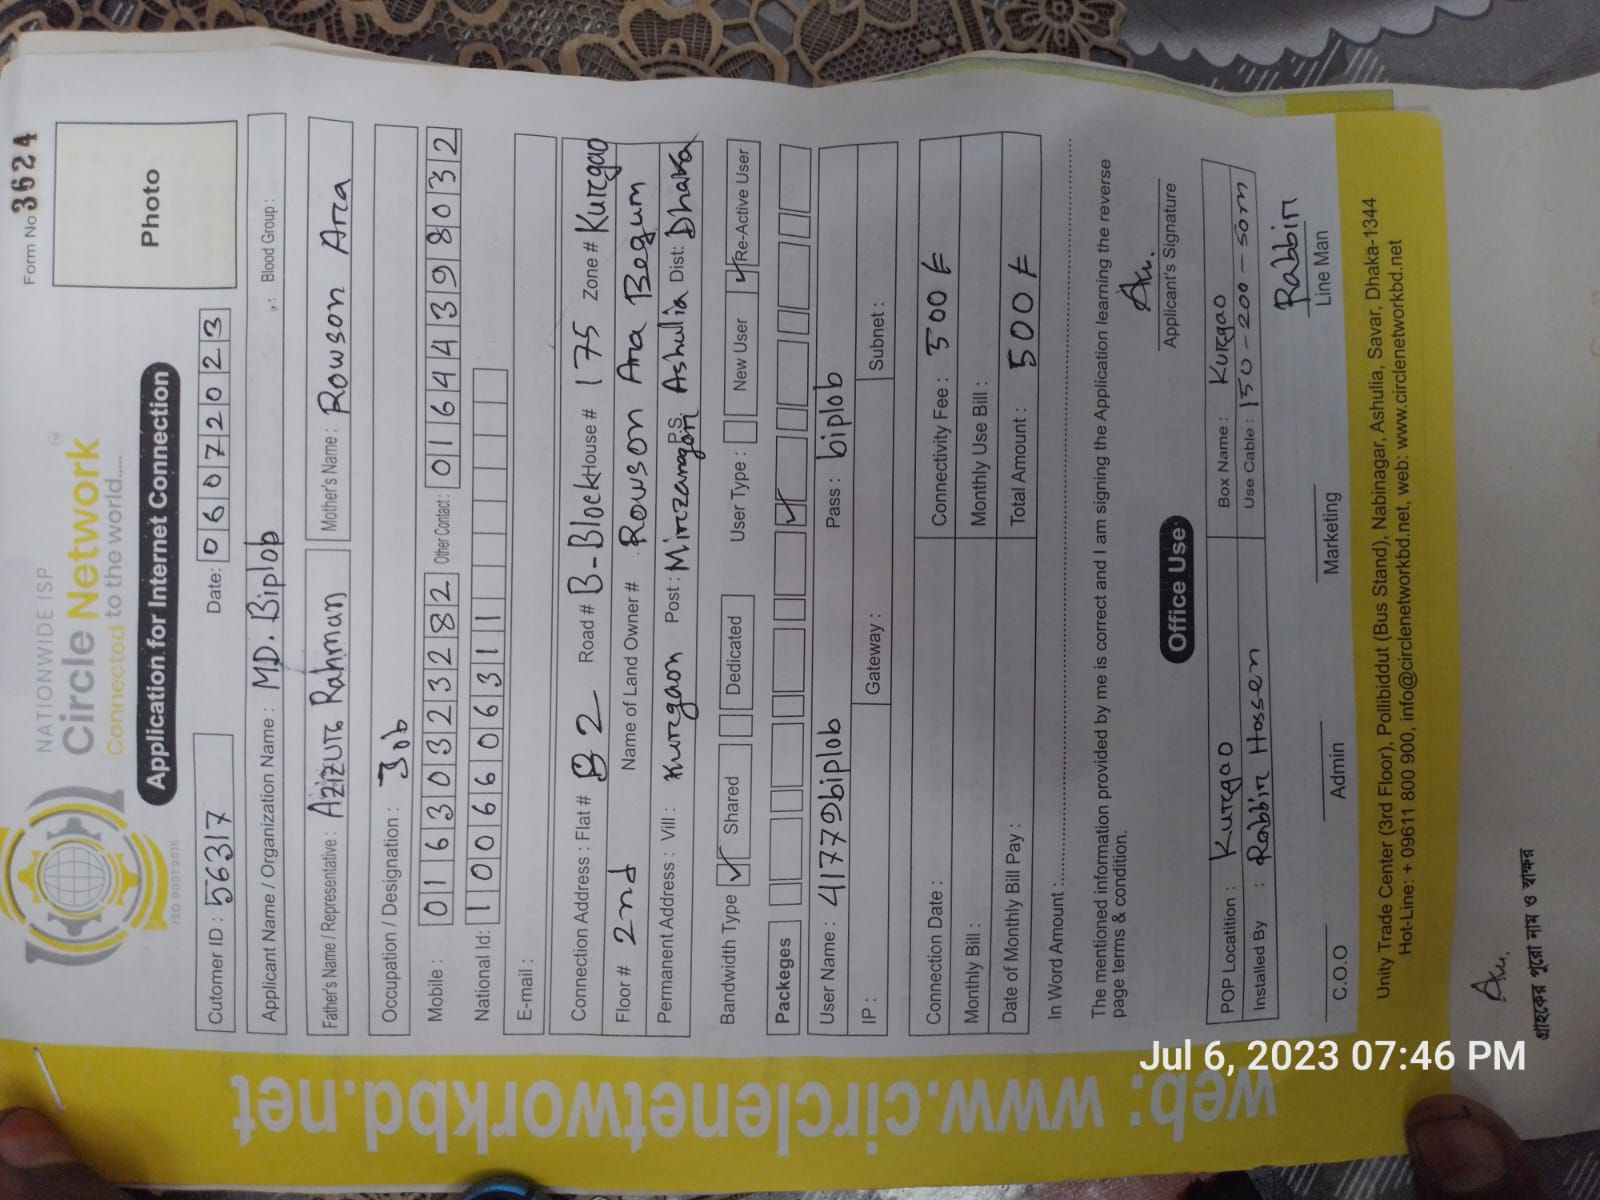 Form No 3624
NATIONWIDE ISP
Circle Network™
Connected to the world.....
ISO 9001:2015
Application for Internet Connection
Photo
Cutomer ID : 56317 Date: 06072023
Applicant Name / Organization Name : MD. Biplob Blood Group :
Father's Name / Representative : Azizur Rahman Mother's Name : Rowson Ara
Occupation / Designation : Job
Mobile : 01630323282 Other Contact: 01644398032
National Id: 1006606311
E-mail :
Connection Address : Flat # B2 Road # B-Block House # 175 Zone # Kurgao
Floor # 2nd Name of Land Owner # Rowson Ara Begum
Permanent Address : Vill : Kurgaon Post : Mirzanagar P.S Ashulia Dist: Dhaka
Bandwidth Type Shared Dedicated User Type : New User Re-Active User
Packeges
User Name : 41779biplob Pass : biplob
IP : Gateway : Subnet :
Connection Date : Connectivity Fee : 500 t
Monthly Bill : Monthly Use Bill :
Date of Monthly Bill Pay : Total Amount : 500 t
In Word Amount :
The mentioned information provided by me is correct and I am signing the Application learning the reverse
page terms & condition.
Applicant's Signature
Office Use
POP Locatition : Kurgao Box Name : Kurgao
Installed By : Rabbir Hossen Use Cable : 150-200-50m
Rabbir
C.O.O Admin Marketing Line Man
Unity Trade Center (3rd Floor), Pollibiddut (Bus Stand), Nabinagar, Ashullia, Savar, Dhaka-1344
Hot-Line: + 09611 800 900, info@circlenetworkbd.net, web: www.circlenetworkbd.net
web: www.circlenetworkbd.net
গ্রাহকের পুরো নাম ও স্বাক্ষর
Jul 6, 2023 07:46 PM